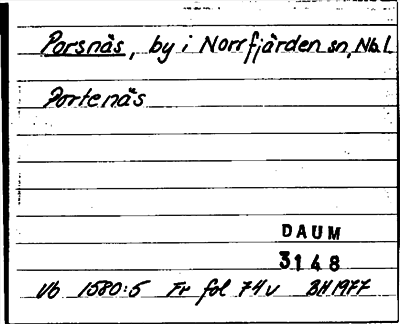 Porsnäs, by i Norrfjärden sn, Nb.l
Portenäs
DAUM
3148
Vb 1580:5 Fr fol 74v BH 1977